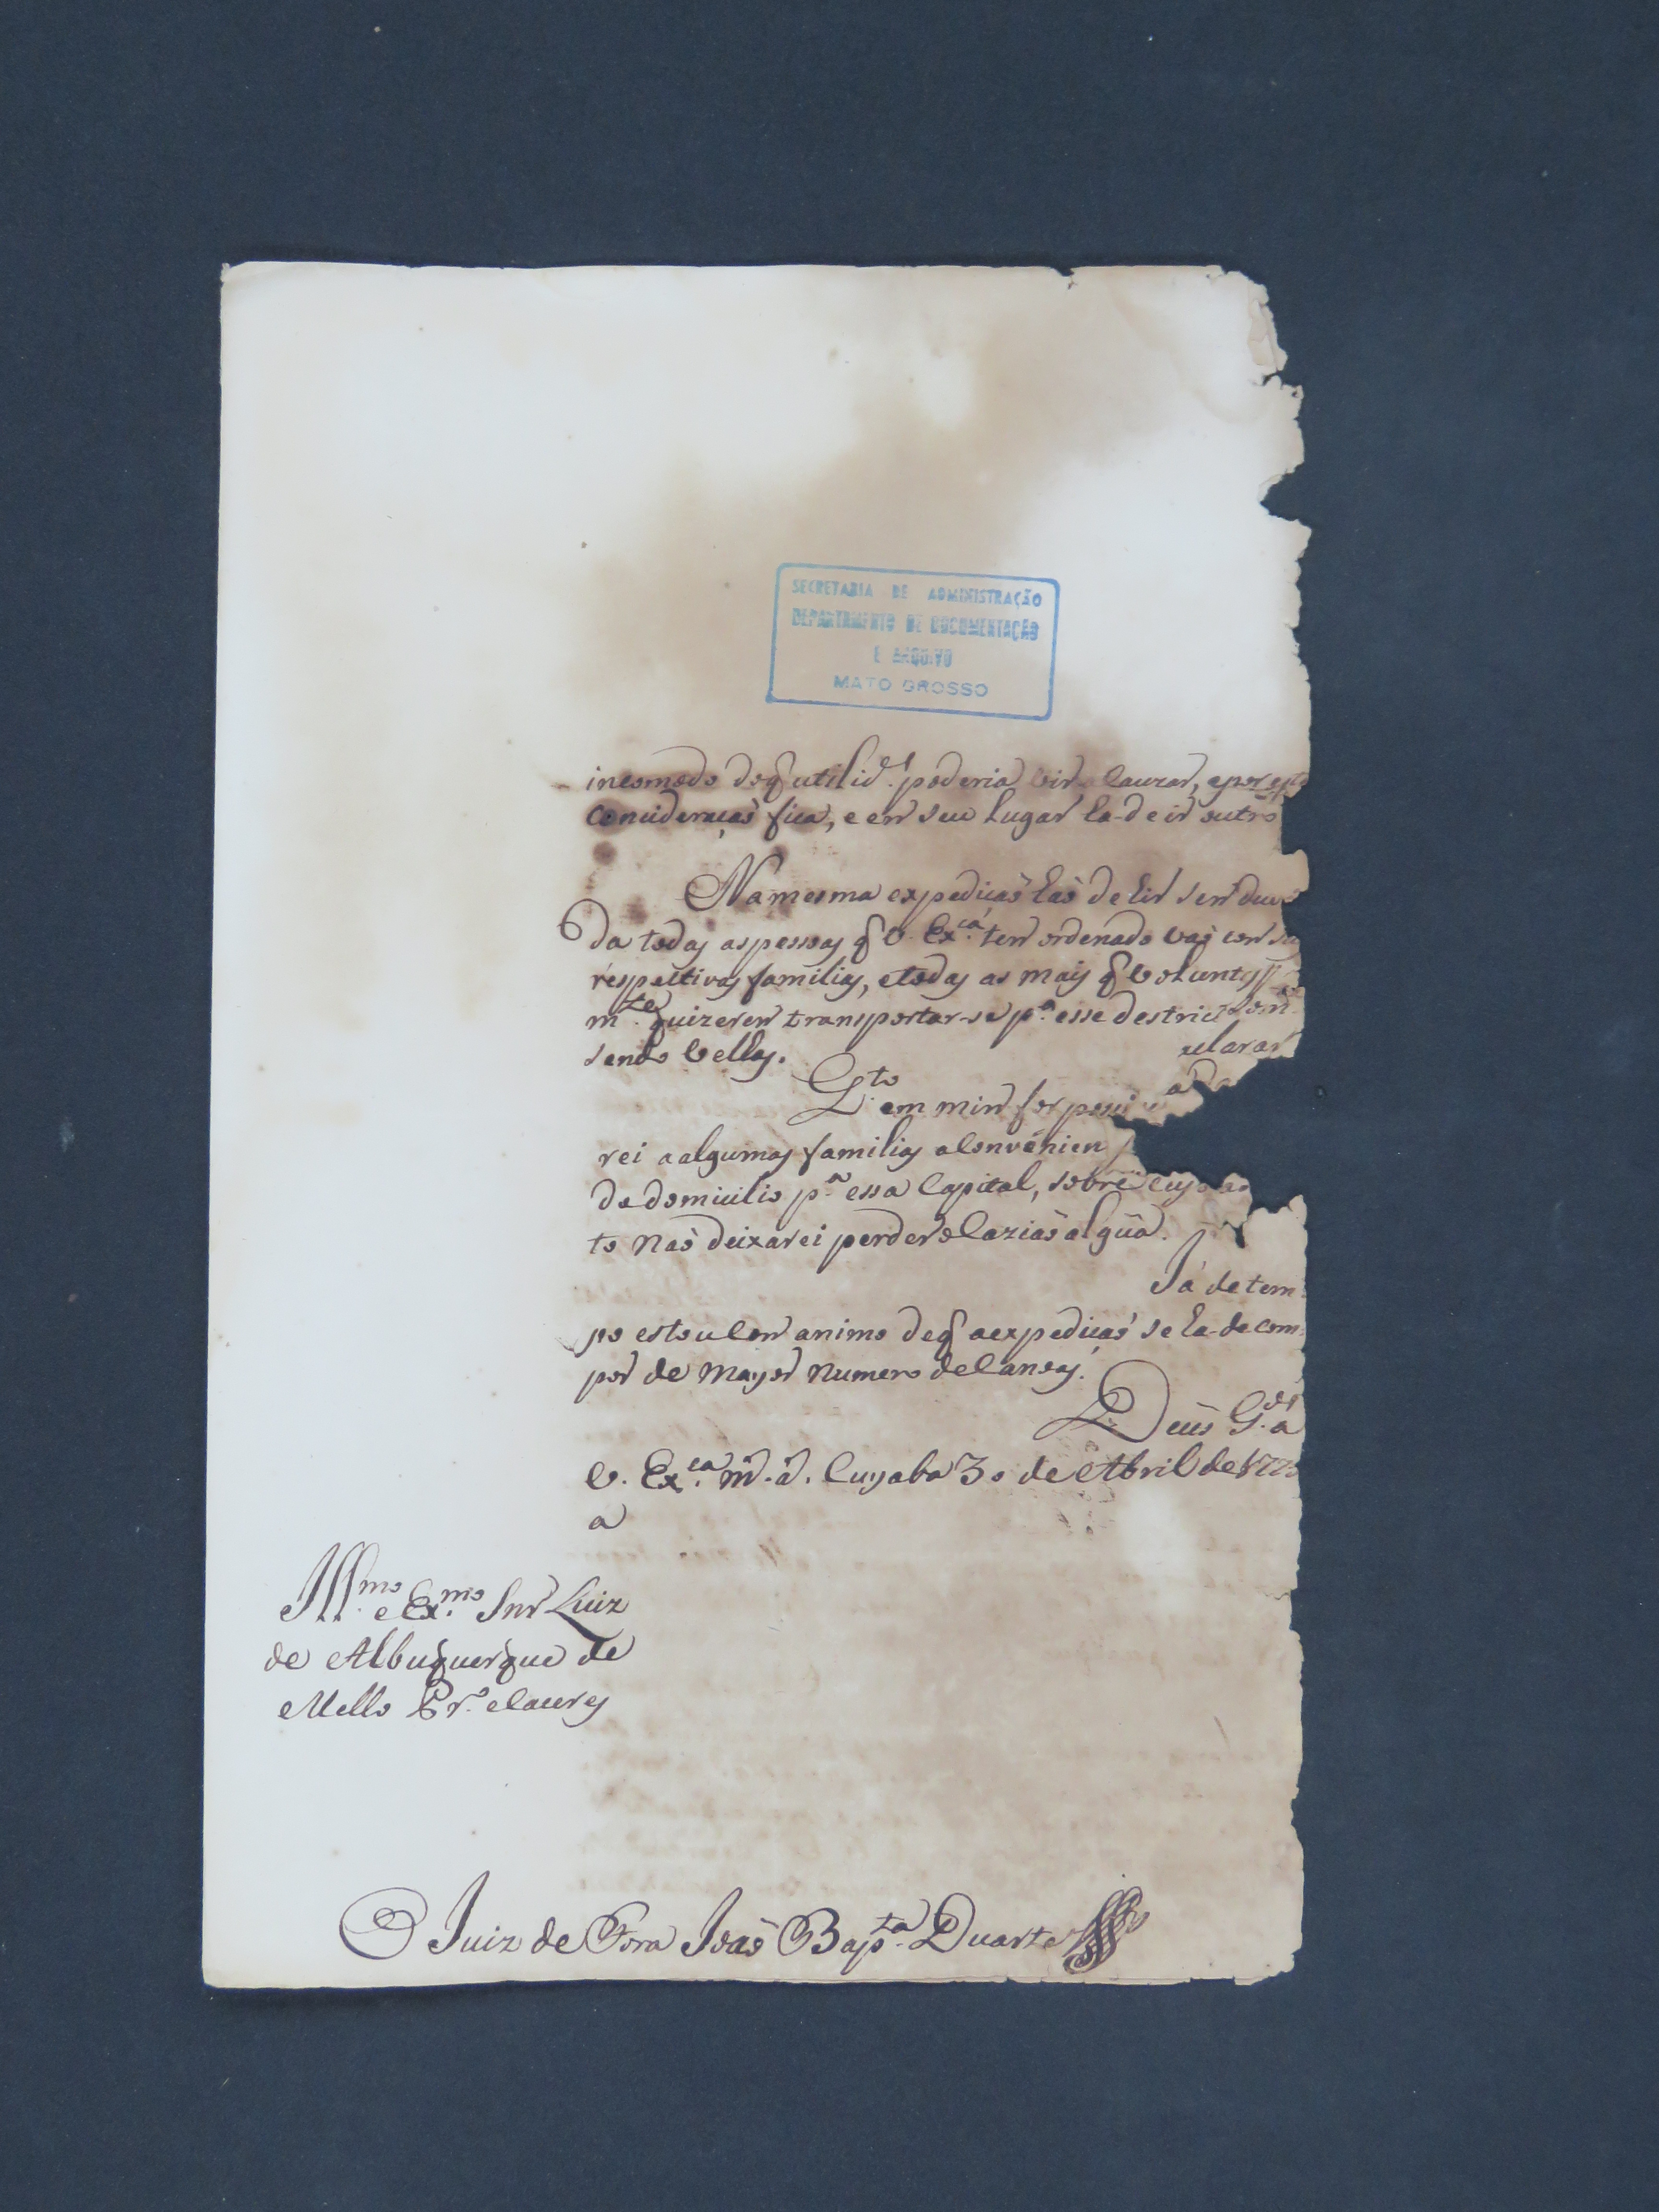 SECRETARIA DE ADMINISTRAÇÃO
DEPARTAMENTO DE DOCUMENTAÇÃO
E ARQUIVO
MATO GROSSO
incomodo do q̃ utilid.e poderia vir a cauzar, e por
concideraçaõ fica, e em seu lugar ha-de ir outro
Na mesma expediçaõ haõ de hir sem duvi
da todas as pessoas q̃ V. Ex.ca tem ordenado vaõ com
respectivas familias, e todas as mais q̃ volunt
m.te quizerem transportar-se p.a esse destricto
sendo vellas.
Q.to em mim for
rei a algumas familias a convenien
do domicilio p.a essa Capital, sobre cujo
to naõ deixarei perder ocaziaõ algũa.
Já de tem
po estou com animo de q̃ a expediçaõ se ha-de com
por de mayor numero de canoas.
Deus G.de a
V. Ex.ca m. a. Cuyaba 30 de Abril de
a
Ill.mo e Ex.mo Snr Luiz
de Albuquerque de
Mello Pr.a e Caceres
O Juiz de Fora Joaõ Bap.ta Duarte